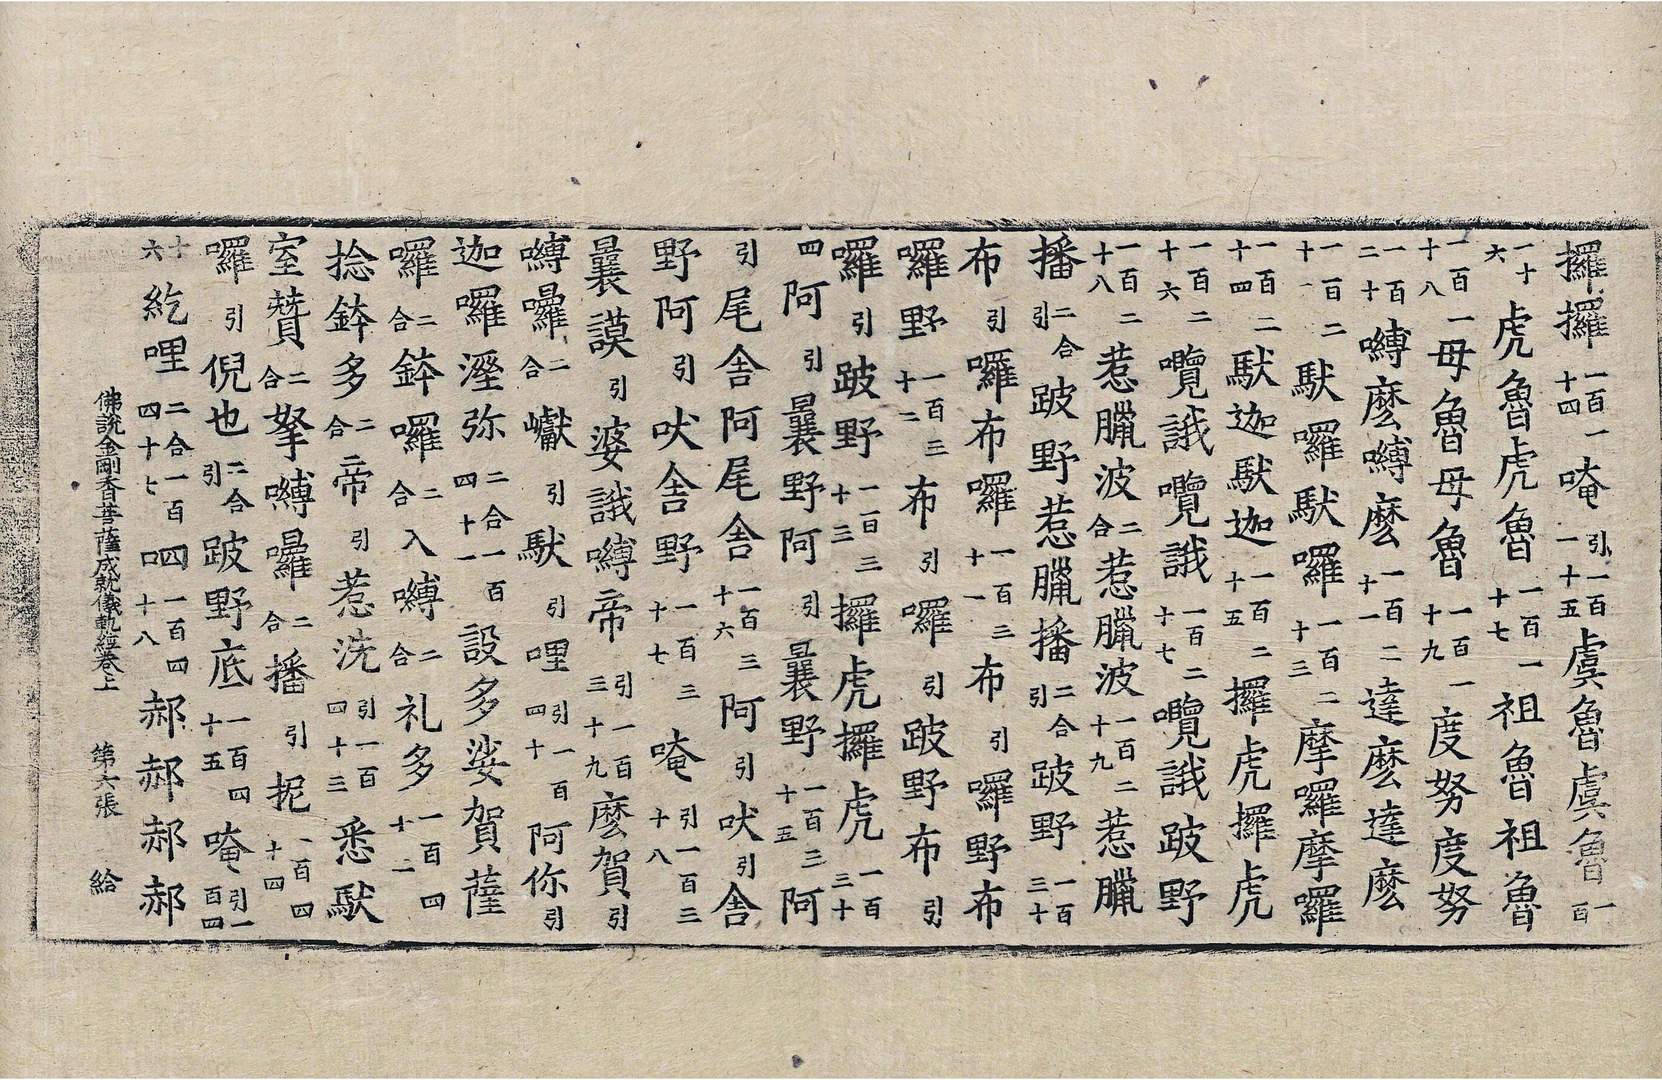 攞攞一百一十四唵引一百一十五虞魯虞魯一百
一十六虎魯虎魯一百一十七祖魯祖魯
一百一十八母魯母魯一百一十九度努度努
一百二十嚩麽嚩麽一百二十一達麽達麽
一百二十一馱囉馱囉一百二十三摩囉摩囉
一百二十四馱迦馱迦一百二十五攞虎攞虎
一百二十六嚂誐嚂誐一百二十七嚂誐跛野
一百二十八惹臘波二合惹臘波一百二十九惹臘
播二合引跛野惹臘播二合引跛野一百三十
布引囉布囉一百三十一布引囉野布
囉野一百三十二布引囉引跛野布引
囉引跛野一百三十三攞虎攞虎一百三十
四阿引曩野阿引曩野一百三十五阿
引尾舍阿尾舍一百三十六阿引吠引舍
野阿引吠舍野一百三十七唵引一百三十八
曩謨引婆誐嚩帝引一百三十九麽賀引
嚩囉二合巘引馱引哩引一百四十阿你引
迦囉溼弥二合一百四十一設多娑賀薩
囉二合鉢囉二合入嚩二合礼多一百四十二
捻鉢多二合帝引惹洗引一百四十三悉馱
室贊二合拏嚩囉二合播引抳一百四十四
囉引倪也二合引跛野底一百四十五唵引一百四
十六紇哩二合一百四十七吽一百四十八郝郝郝郝
佛說金剛香菩薩成就儀軌經卷上　第六張　給